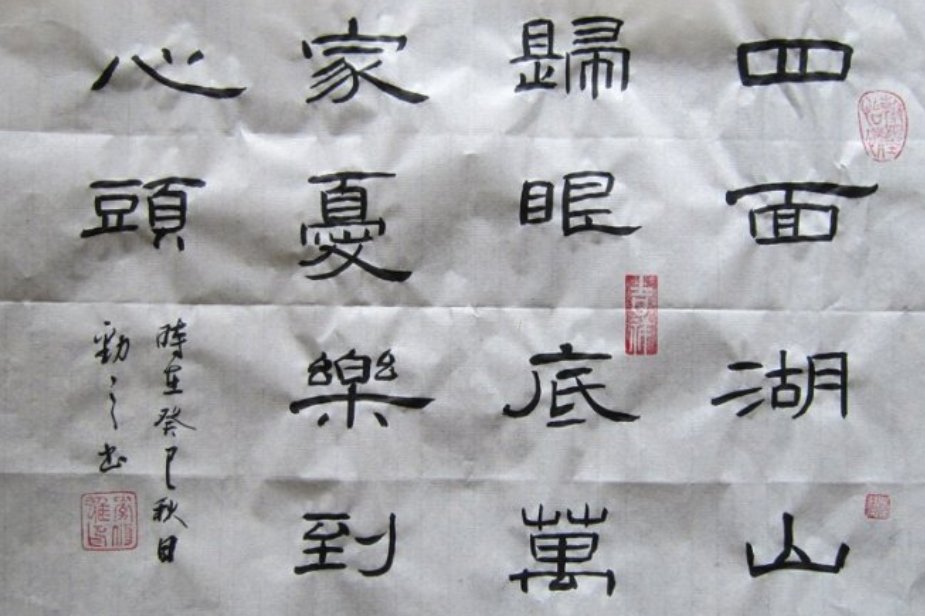 四面湖山
歸眼底萬
家憂樂到
心頭
時在癸巳秋日
勁之書